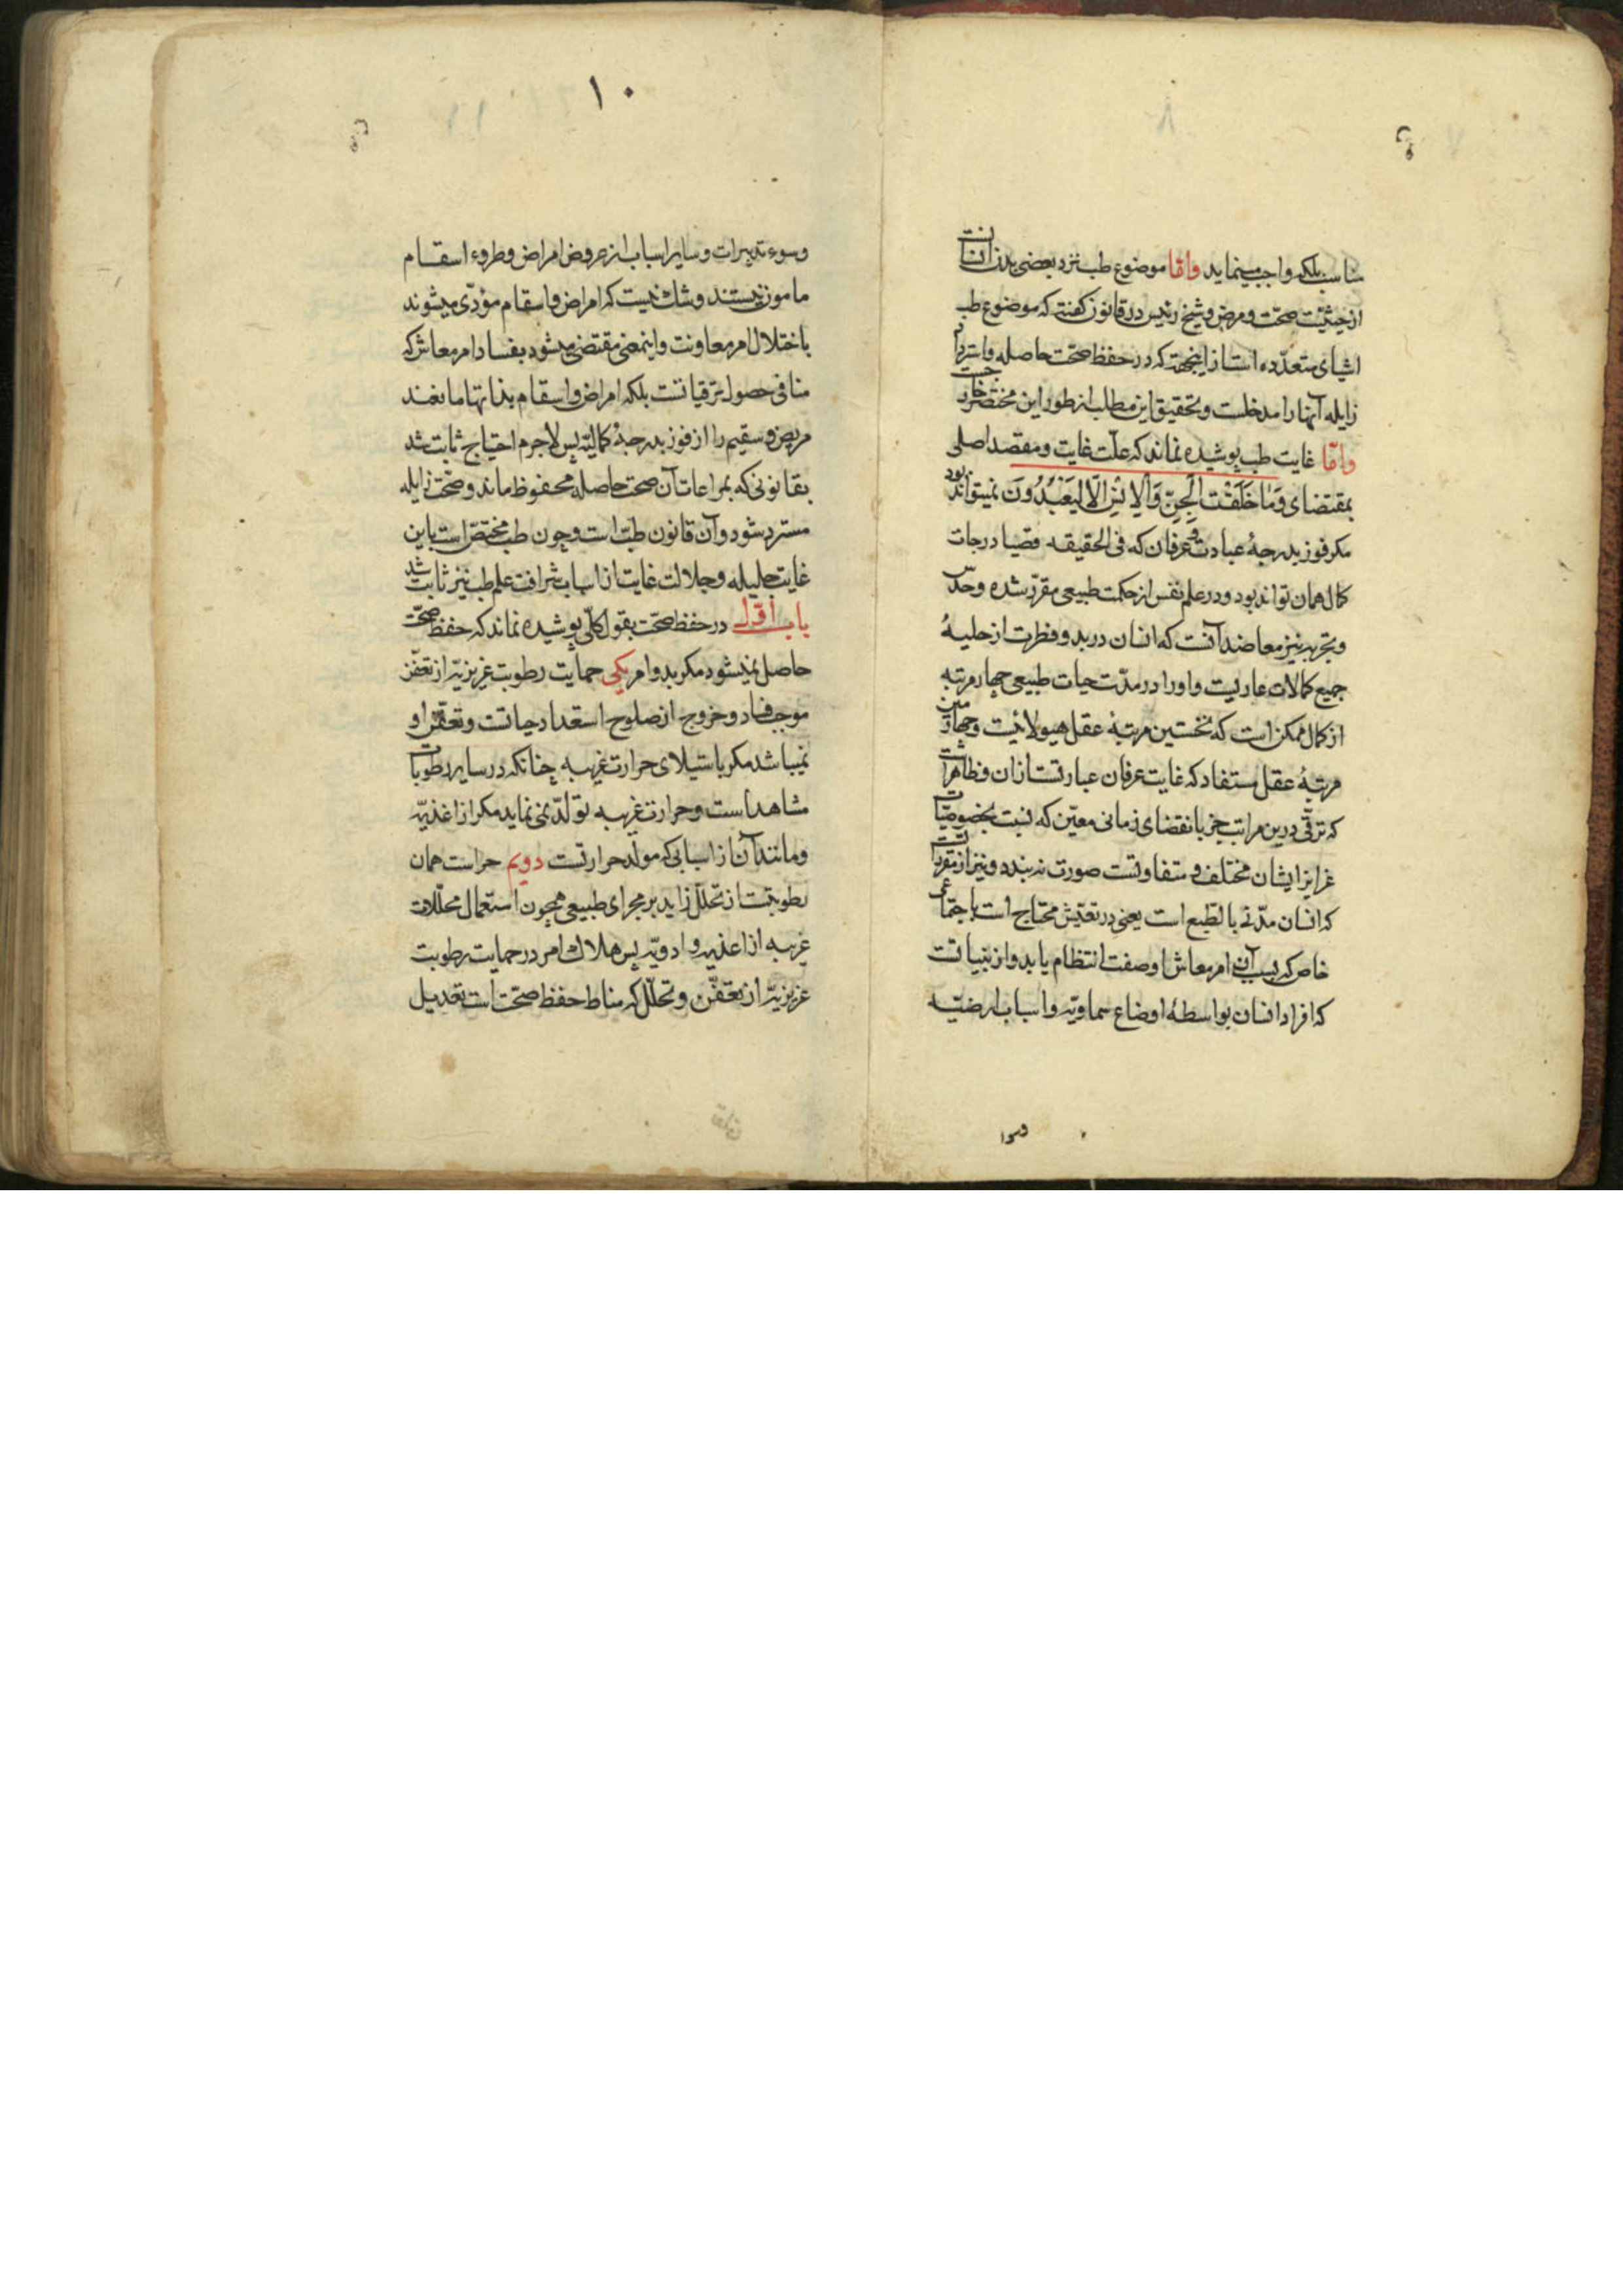 مناسب بلکه واجب مینماید واما موضوع طب نزد بعضی بدن انسانست
از حیثیت صحت و مرض و شیخ رئیس در قانون گفته که موضوع طب
اشیای متعدده است از اینجهت که در حفظ صحت حاصله و استرداد
زایله آنها را مدخلست و تحقیق این مطلب از طور این مختصر خارجست
واما غایت طب پوشیده نماند که علت غایت و مقصد اصلی
بمقتضای وَمَا خَلَقْتُ الْجِنَّ وَالْاِنْسَ اِلَّا لِیَعْبُدُونَ نمیتواند بود
مکر فوز بدرجهٔ عبادت و عرفان که فی الحقیقه قصیا درجات
کمال همان تواند بود و در علم نفس از حکمت طبیعی مقرر شده وحدس
و تجربه نیز معاضد آنست که انسان در بدو فطرت از حلیهٔ
جمیع کمالات عاریست و او را در مدت حیات طبیعی چهار مرتبه
از کمال ممکن است که نخستین مرتبهٔ عقل هیولانیست و چهارمین
مرتبهٔ عقل مستفاد که غایت عرفان عبارتست از ان و ظاهراست
که ترقی درین مراتب جز بانقضای زمانی معین که نسبت بخصوصیات
غرایز ایشان مختلف و متفاوتست صورت نه بندد و نیز از مقرراتست
که انسان مدنی بالطبع است یعنی در تعیش محتاج است باجتماعی
خاص که بسبب آن امر معاش او صفت انتظام یابد و از بینیاتست
که افراد انسان بواسطهٔ اوضاع سماویه و اسباب ارضیه
وسوا
١٠
وسوء تدبیرات و سایر اسباب از عروض امراض و طروء اسقام
مامون نیستند و شک نیست که امراض و اسقام مؤدی میشوند
باختلال امر معاونت و اینمعنی مقتضی میشود بفساد امر معاش که
منافی حصول ترقیاتست بلکه امراض و اسقام بذاتها مانعند
مریض و سقیم را از فوز بدرجهٔ کمالیه پس لاجرم احتیاج ثابت شد
بقانونی که بمراعات آن صحت حاصله محفوظ ماند و صحت زایله
مسترد شود و آن قانون طب است و چون طب مختص است باین
غایت جلیله و جلالت غایت از اسباب شرافت علم طب نیز ثابت شد
باب اول در حفظ صحت بقول کلی پوشیده نماند که حفظ صحت
حاصل نمیشود مکر بدو امر یکی حمایت رطوبت غریزیه از تعفن
موجب فساد و خروج از صلوح استعداد حیاتست و تعفن او
نمیباشد مکر باستیلای حرارت غریبه چنانکه در سایر رطوبات
مشاهد است و حرارت غریبه تولد نمی نماید مکر از اغذیه
و مانند آن از اسبابی که مولد حرارتست دویم حراست همان
رطوبتست از تحلل زاید بر مجرای طبیعی همچون استعمال محللات
غریبه از اغذیه و ادویه پس ملاک امر در حمایت رطوبت
غریزیه از تعفن و تحلل که مناط حفظ صحت است تعدیل